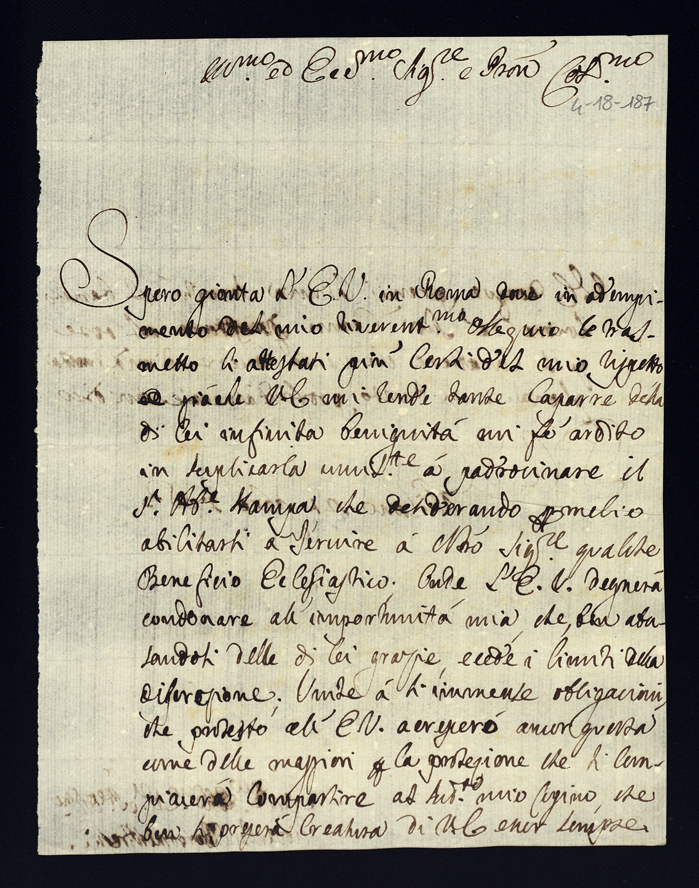 Ill.mo ed Ecc.mo Sig.re e Pron Col.mo
4-18-187
Spero gionta L'E.V. in Roma in adempi-
mento del mio riverent.mo osequio le tras-
metto li attestati più certi del mio rispetto
e giache VE mi rende tante Caparre della
di lei infinita benignità mi fè ardito
in suplicarla umil.te à padrocinare il
S.r Ab.te Stampa che desiderando p melio
abilitarsi à Servire à Nrõ Sig.re qualche
Beneficio Eclesiastico. Onde L'E.V. degnerà
condonare all'importunità mia, che, ben abu-
sandosi delle di lei grazie, ecede i limiti della
discrezione. Unite à li immense obligazioni,
che protesto all'E.V. acrescerò ancor questa
come delle magiori p la protezione che si com-
piacerà Compartire al sud.to mio Cogino, che
ben si pregerà Creatura di VE esser sempre.